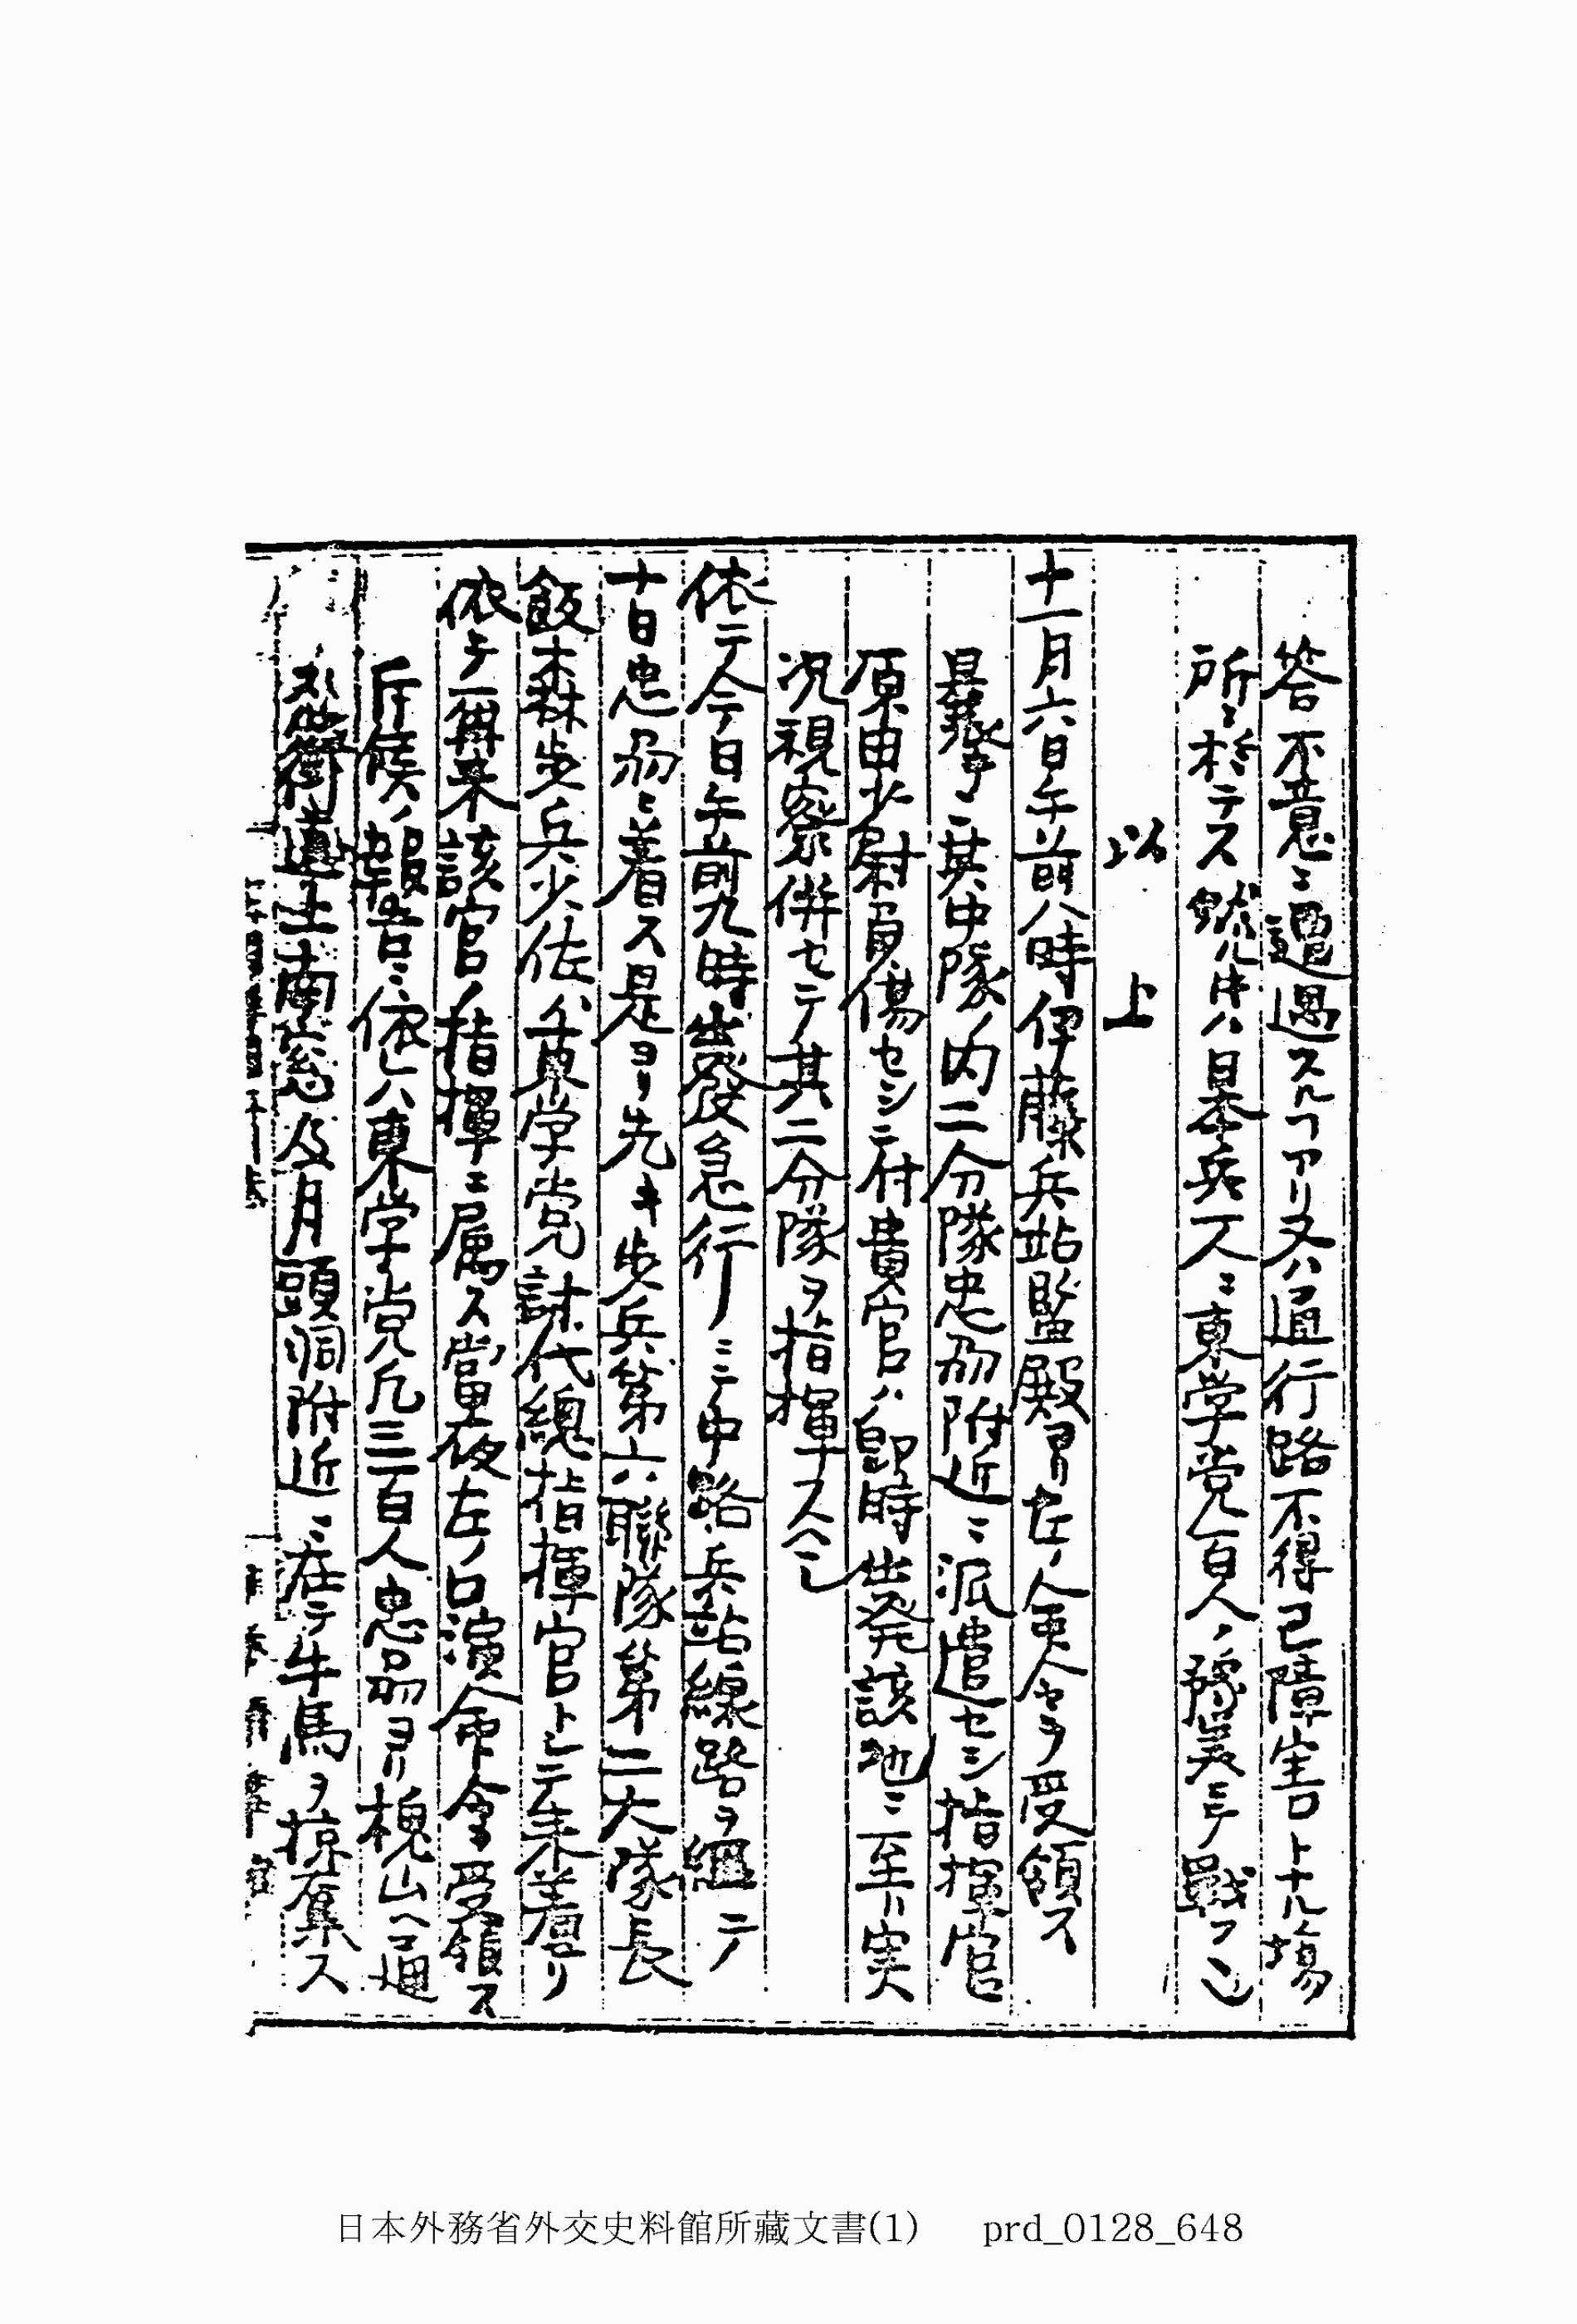 答 不意ニ遭遇スルヿアリ又ハ通行路不得已障害トナル塲
所ニ於テス然ル片ハ日本兵一人ニ東学党百人ノ豫算ニテ戦フヿ
以上
十一月六日午前八時伊藤兵站監殿ヨリ左ノ命令ヲ受領ス
暴挙ニ其中隊ノ内二分隊忠州附近ニ派遣セシ指揮官
原田少尉負傷セシニ付貴官ハ即時出発該地ニ至リ実
况視察併セテ其二分隊ヲ指揮スヘシ
依テ今日午前九時出發急行ニテ中路兵站線路ヲ経テ
十日忠州ニ着ス是ヨリ先キ歩兵第六聯隊第二大隊長
飯森歩兵少佐ハ東学党討伐總指揮官トシテ来着居リ
依テ爾来該官ノ指揮ニ属ス當夜左ノ口演命令受領ス
斥候ノ報告ニ依レハ東学党凡三百人忠州ヨリ槐山ヘ通
スル街道上南窓及月頭洞附近ニ在テ牛馬ヲ掠奪ス
日本外務省外交史料館所藏文書(1) prd_0128_648